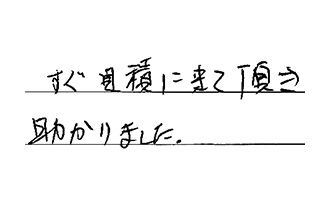 すぐ見積に来て頂き
助かりました.